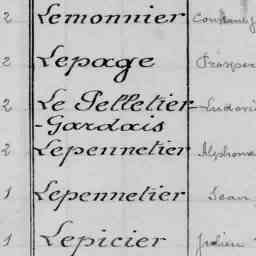 2 Lemonnier
2 Lepage Prosper
2 Le Pelletier- Ludovic
-Gardais
2 Lepennetier Alphonse
1 Lepennetier Jean
1 Lepicier Julien